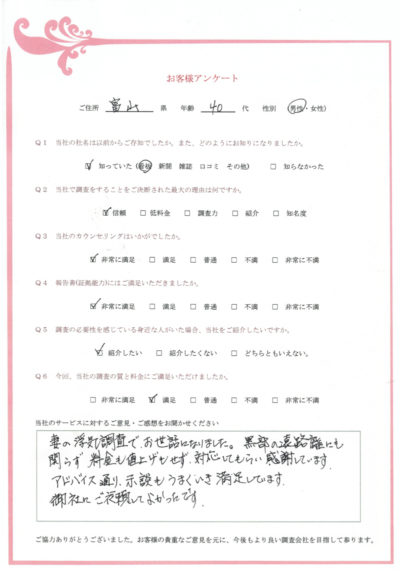 お客様アンケート
ご住所 富山 県 年齢 40 代 性別 (男性・女性)
Q1 当社の社名は以前からご存知でしたか。また、どのようにお知りになりましたか。
☑ 知っていた (看板 新聞 雑誌 口コミ その他) □ 知らなかった
Q2 当社で調査をすることをご決断された最大の理由は何ですか。
☑ 信頼 □ 低料金 □ 調査力 □ 紹介 □ 知名度
Q3 当社のカウンセリングはいかがでしたか。
☑ 非常に満足 □ 満足 □ 普通 □ 不満 □ 非常に不満
Q4 報告書(証拠能力)にはご満足いただきましたか。
☑ 非常に満足 □ 満足 □ 普通 □ 不満 □ 非常に不満
Q5 調査の必要性を感じている身近な人がいた場合、当社をご紹介したいですか。
☑ 紹介したい □ 紹介したくない □ どちらともいえない。
Q6 今回、当社の調査の質と料金にご満足いただけましたか。
□ 非常に満足 ☑ 満足 □ 普通 □ 不満 □ 非常に不満
当社のサービスに対するご意見・ご感想をお聞かせください
妻の浮気調査で、お世話になりました。黒部の遠路誰にも
関らず 料金も値上げもせず、対応してもらい感謝しています。
アドバイス通り、示談もうまくいき満足しています。
御社にご依頼してよかったです。
ご協力ありがとうございました。お客様の貴重なご意見を元に、今後もより良い調査会社を目指して参ります。